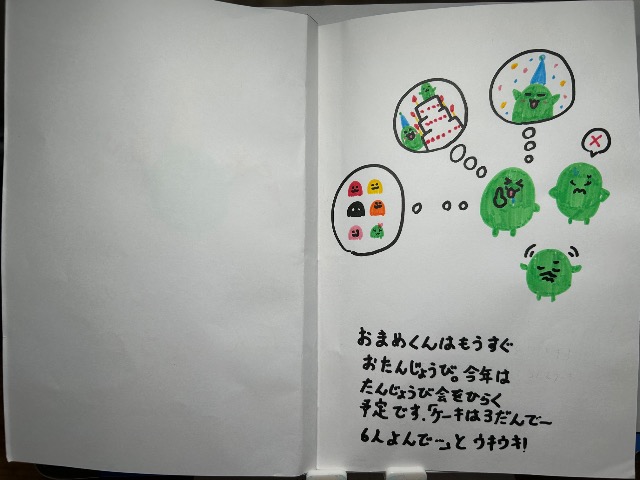 おまめくんはもうすぐ
おたんじょうび。今年は
たんじょうび会をひらく
予定です。「ケーキは3だんで〜
6人よんで〜」と ウキウキ!